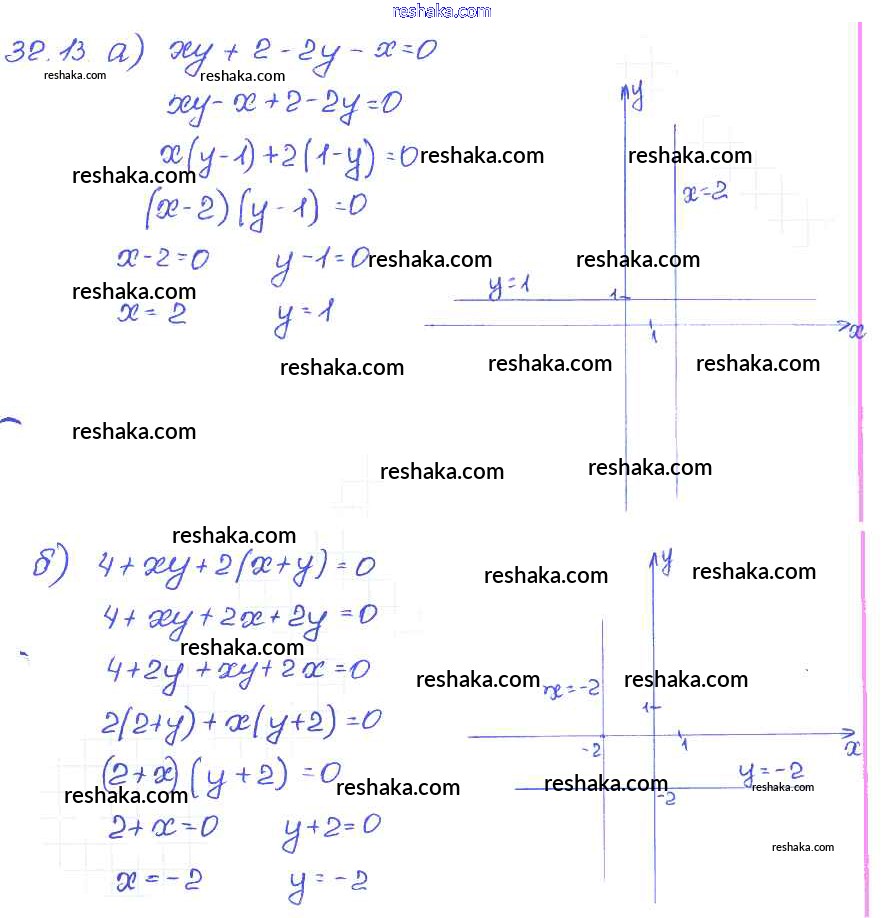 reshaka.com
32.13 а) xy + 2 - 2y - x = 0
reshaka.com reshaka.com
xy - x + 2 - 2y = 0
y
x(y-1) + 2(1-y) = 0 reshaka.com reshaka.com
reshaka.com
x=2
(x-2)(y-1) = 0
x-2=0 y-1=0 reshaka.com reshaka.com
reshaka.com y=1 1
x = 2 y = 1
1 x
reshaka.com reshaka.com reshaka.com
reshaka.com
reshaka.com reshaka.com
reshaka.com
б) 4 + xy + 2(x+y) = 0
y
reshaka.com reshaka.com
4 + xy + 2x + 2y = 0
reshaka.com
4 + 2y + xy + 2x = 0
reshaka.com x=-2 reshaka.com
2(2+y) + x(y+2) = 0
1
-2 1 x
(2+x)(y+2) = 0
y=-2
reshaka.com reshaka.com reshaka.com reshaka.com
-2
2+x=0 y+2=0
reshaka.com
x=-2 y=-2